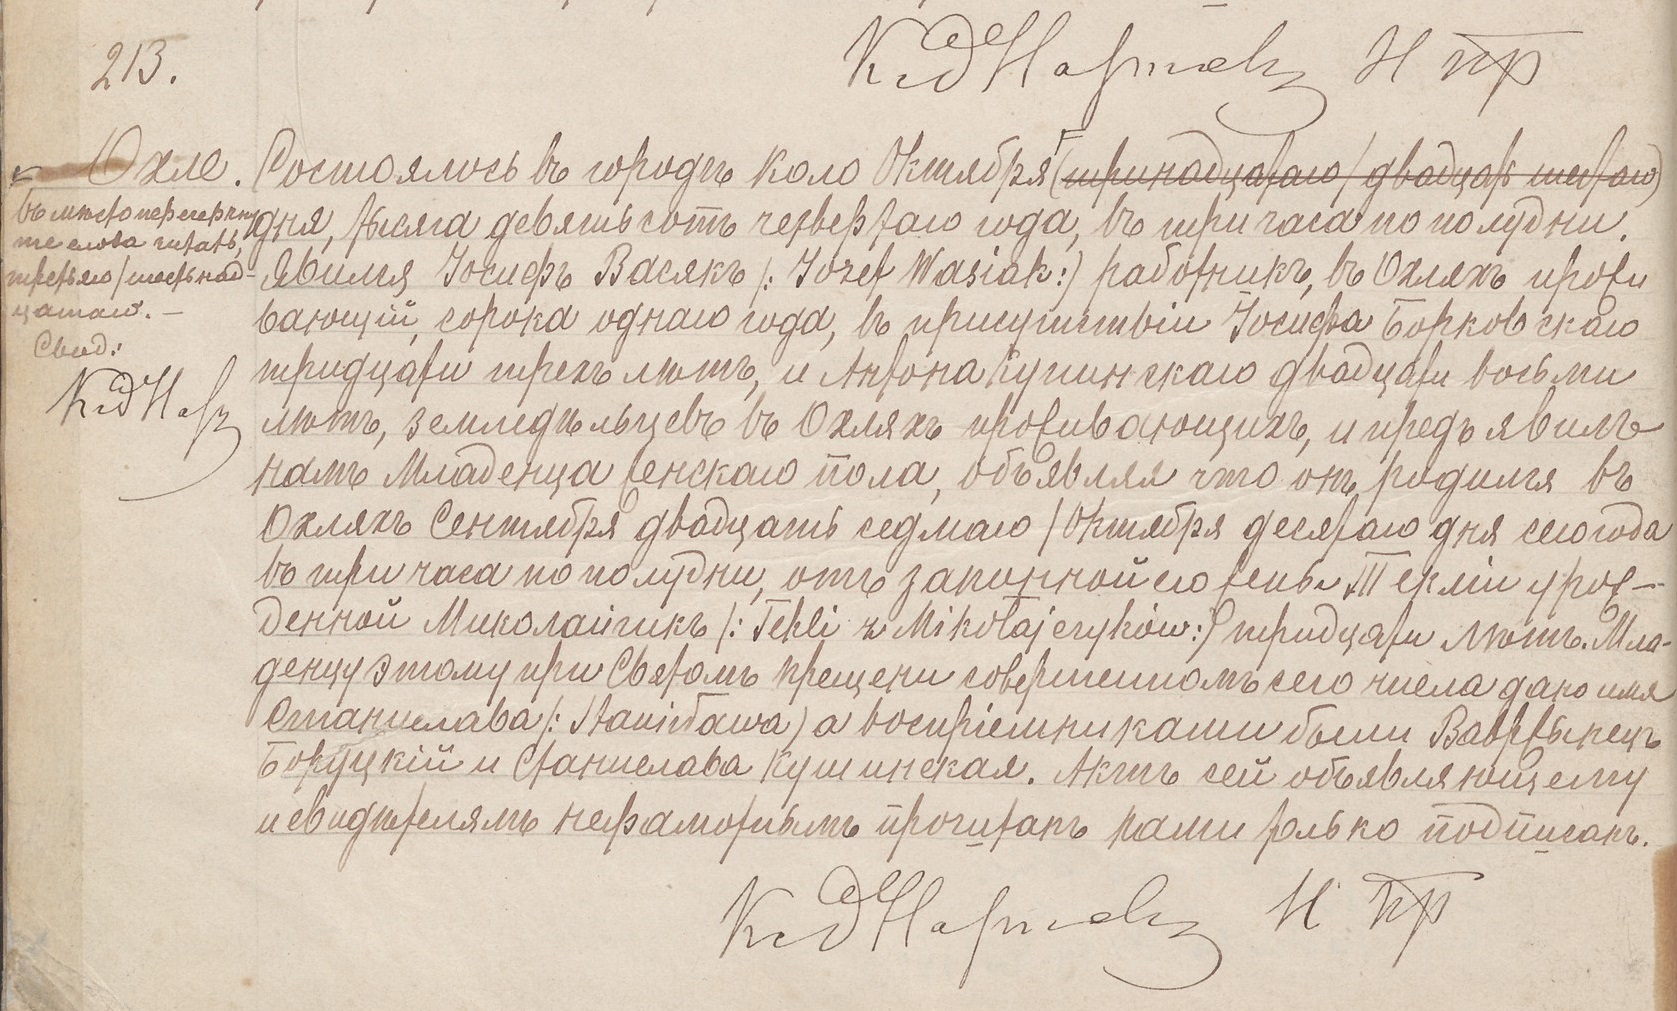 213.
Охле.
въ место перечеркну
тые слова читать,
третьяго / шестьнад-
цатаго. —
Свид:
Состоялось въ городѣ Коло Октября (тринадцатаго / двадцать шестаго)
дня, тысяча девятьсотъ четвертаго года, въ три часа по полудни.
Явился Іосифъ Васякъ /: Józef Wasiak:/ работникъ, въ Охляхъ прожи
вающій, сорока однаго года, въ присутствіи Іосифа Борковскаго
тридцати трехъ лѣтъ, и Антона Кушинскаго двадцати восьми
лѣтъ, земледѣльцевъ въ Охляхъ проживающихъ, и предъявилъ
намъ Младенца женскаго пола, объявляя что онъ родился въ
Охляхъ Сентября двадцать седмаго / Октября десятаго дня сего года
въ три часа по полудни, отъ законной его жены Текли урож-
денной Миколайчикъ /: Tekli z Mikołajczyków:/ тридцати лѣтъ. Мла-
денцу этому при Святомъ крещени совершенномъ сего числа дано имя
Станислава /: Stanisława) а воспріемниками были Вавржынецъ
Боруцкій и Станислава Кушинская. Актъ сей объявляющему
и свидѣтелямъ неграмотнымъ прочитанъ нами только подписанъ.